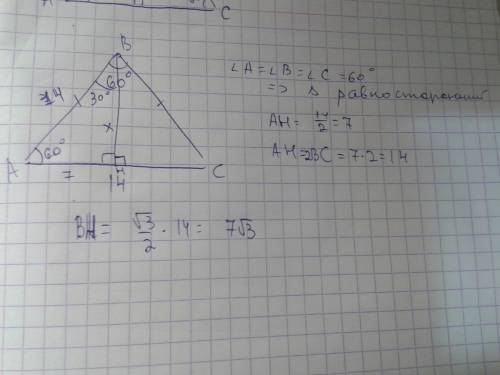 C
B
60°
14
30°
x
A
60°
7
H
14
C
∠A = ∠B = ∠C = 60°
=> Δ равносторонний
AH = 14/2 = 7
AH = 2BC = 7 · 2 = 14
BH = √3/2 · 14 = 7√3